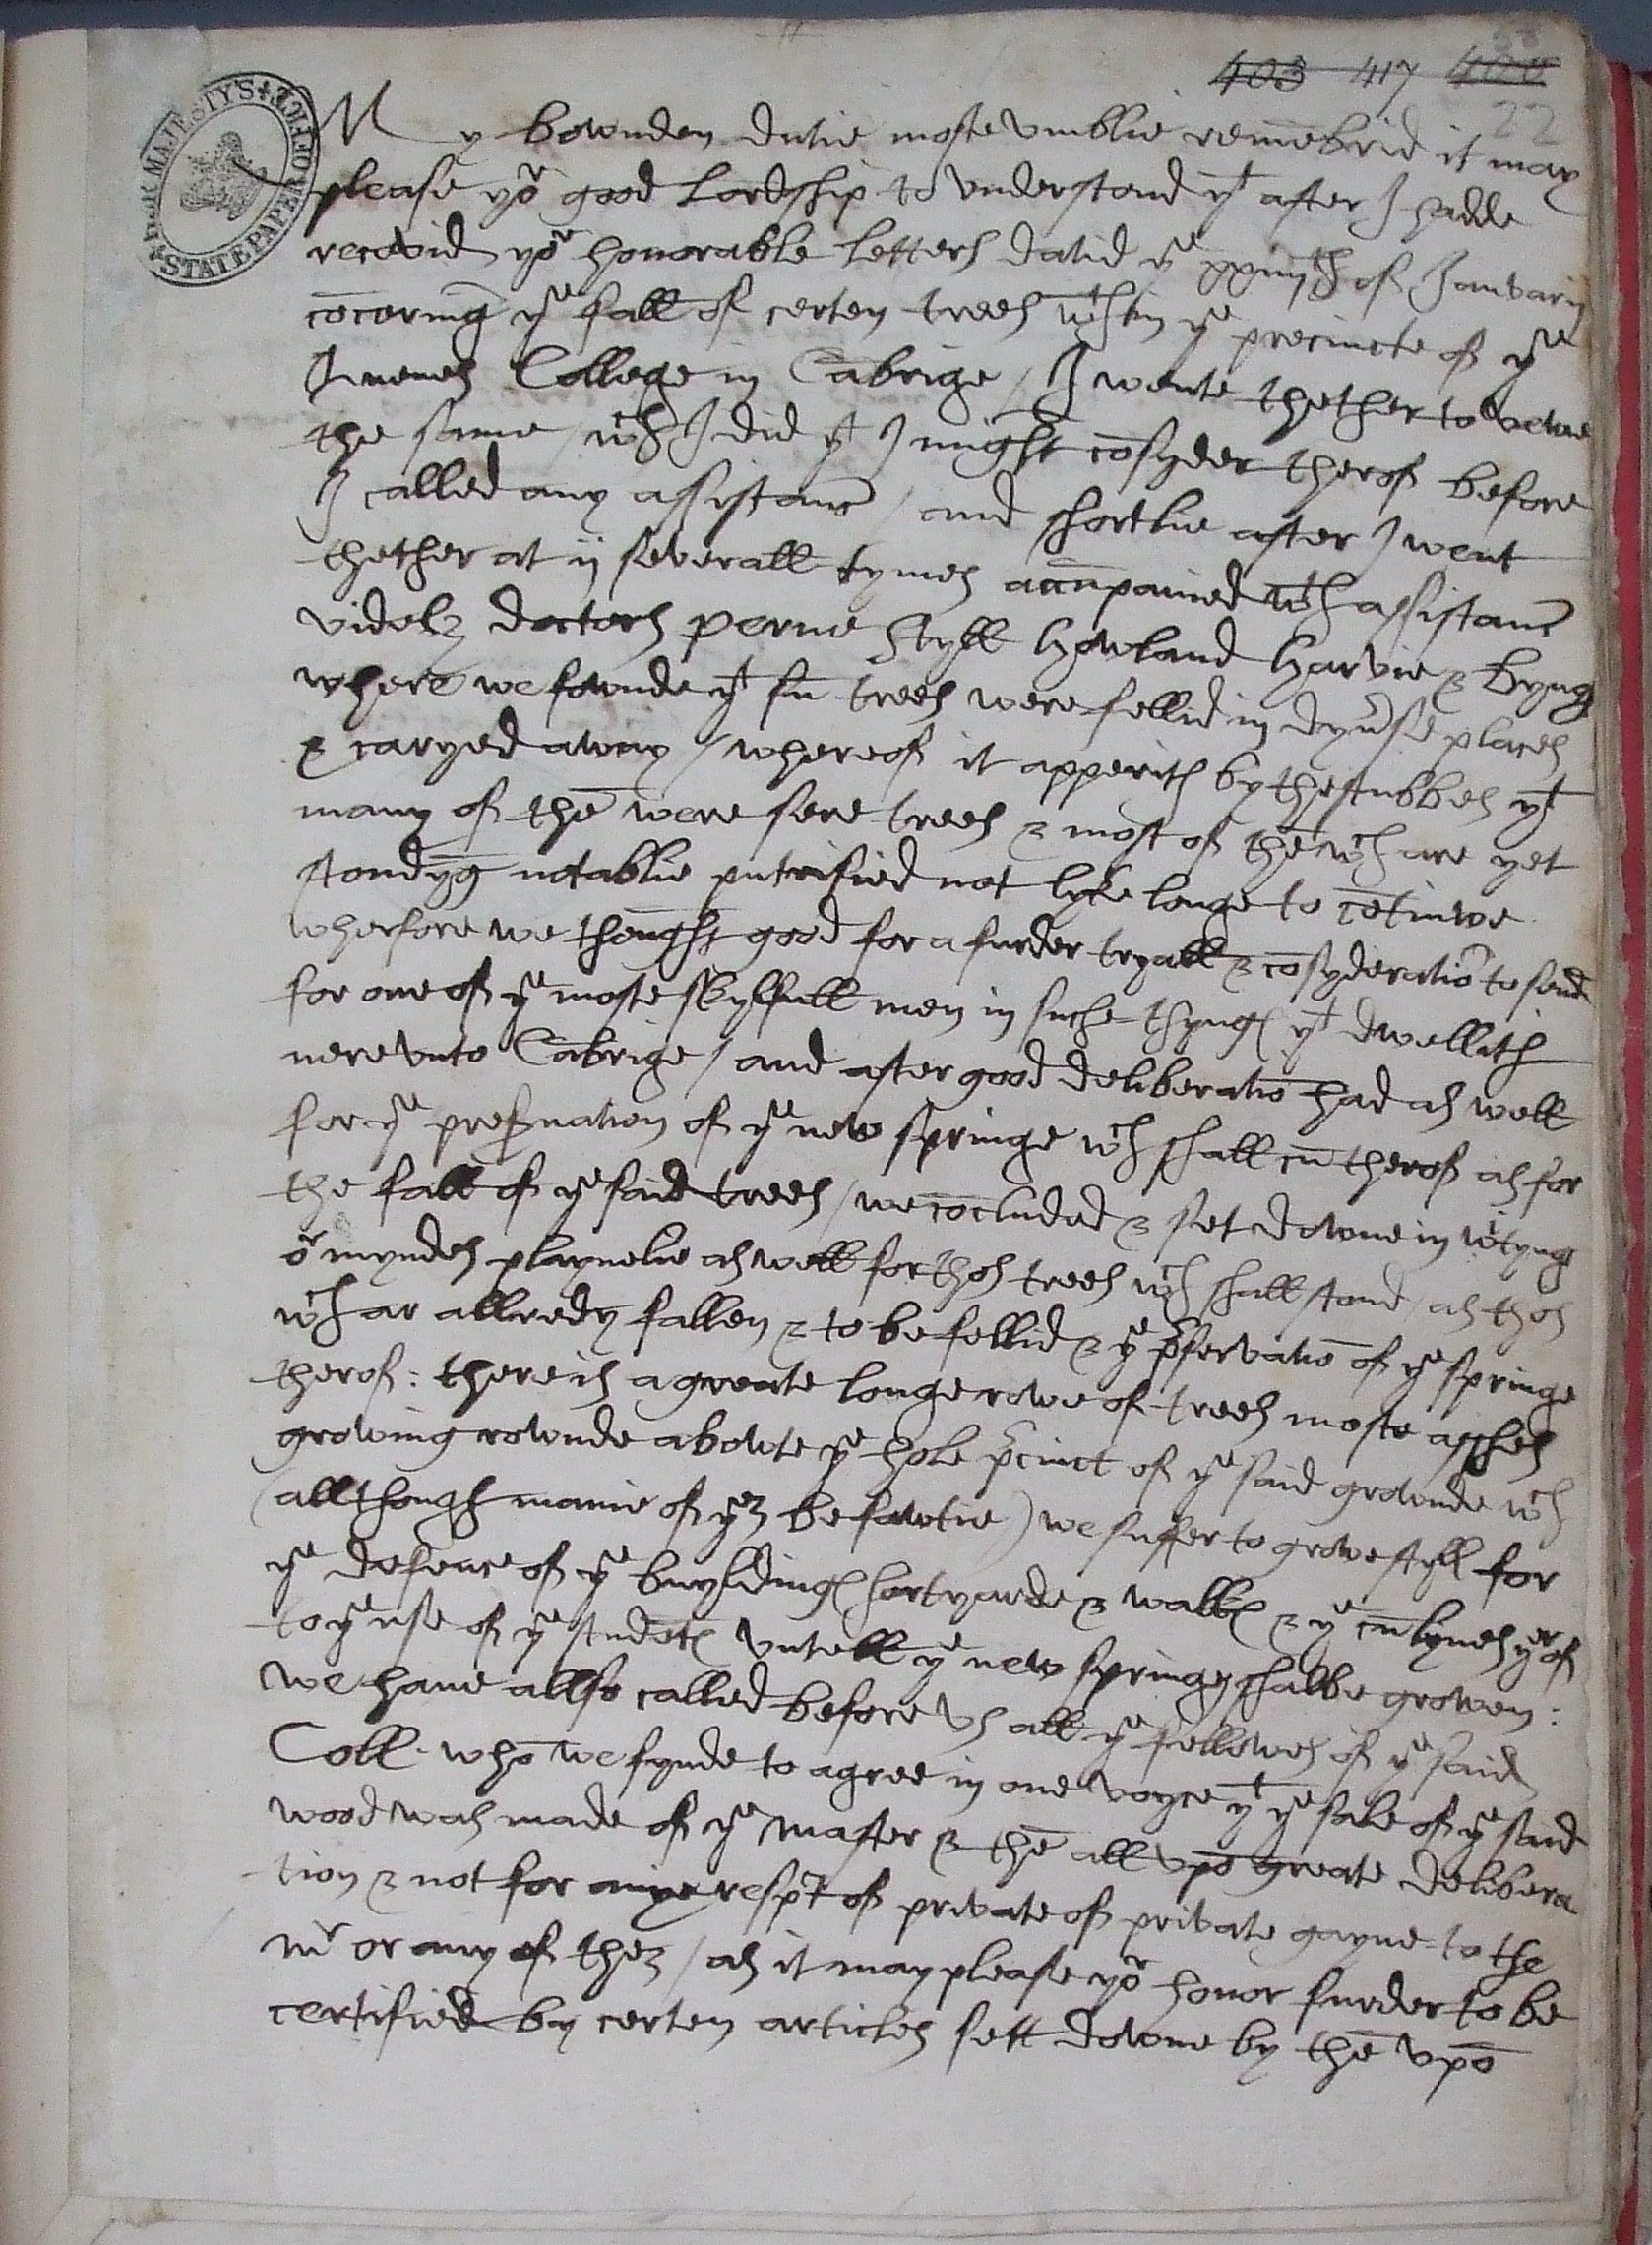 403 417 400
22
HER MAJESTY'S STATE PAPER OFFICE
My bownden dutie moste vmblie remēbrid it may
please yor good Lordship to vnderstand yt after I hadde
recevid yor honorable letters datid ye xxiiijth of Januarij
cōcernīg ye fall of certen trees wthin ye precincte of ye
Quenes College in Cābrige / I wente thether to vewe
the same / wch I did yt I might cōsyder therof before
I called any assistanc / and shortlie after I went
thether at ij severall tymes accūpanied wth assistanc
videlz doctors Perne Styll Howland Harvie & Byng
where we fownde yt sū trees were fellid in dyuse places
& caryed away / whereof it apperith by the stubbes yt
many of thē were sere trees & most of thē wch are yet
stondȳg notablie putrified not lyke longe to cōtinwe
wherfore we thought good for a furder tryall & cōsyderatiō to send
for one of ye moste skylfull men in suche thyngs yt dwellith
nere vnto Cābrige / and after good deliberatiō had as well
for ye preseruation of ye new springe wch shall cū therof as for
the fall of ye said trees / we cōcluded & set downe in wrtyng
or myndes playnelie as well for thos trees wch shall stand / as thos
wch ar allredy fallen & to be fellid & ye pservatiō of ye springe
therof : there is a greate longe rowe of trees moste asshes
growing rownde abowte ye hole pcinct of ye said grownde wch
(allthough manie of yez be fawtie) we suffer to growe styll for
ye defence of ye buyldings hortyarde & walks & ye cūlynes yerof
to ye use of ye studēts vntell ye new springe shalbe growen :
We haue allso called before vs all ye fellowes of ye said
Coll. whō we fynde to agree in one voyce yt ye sale of ye said
wood was made of ye Master & thē all vpō greate delibera
tion & not for anye respt of private of private gayne to the
mr or any of thez / as it may please yor honor furder to be
certified by certen articles sett downe by thē vpō